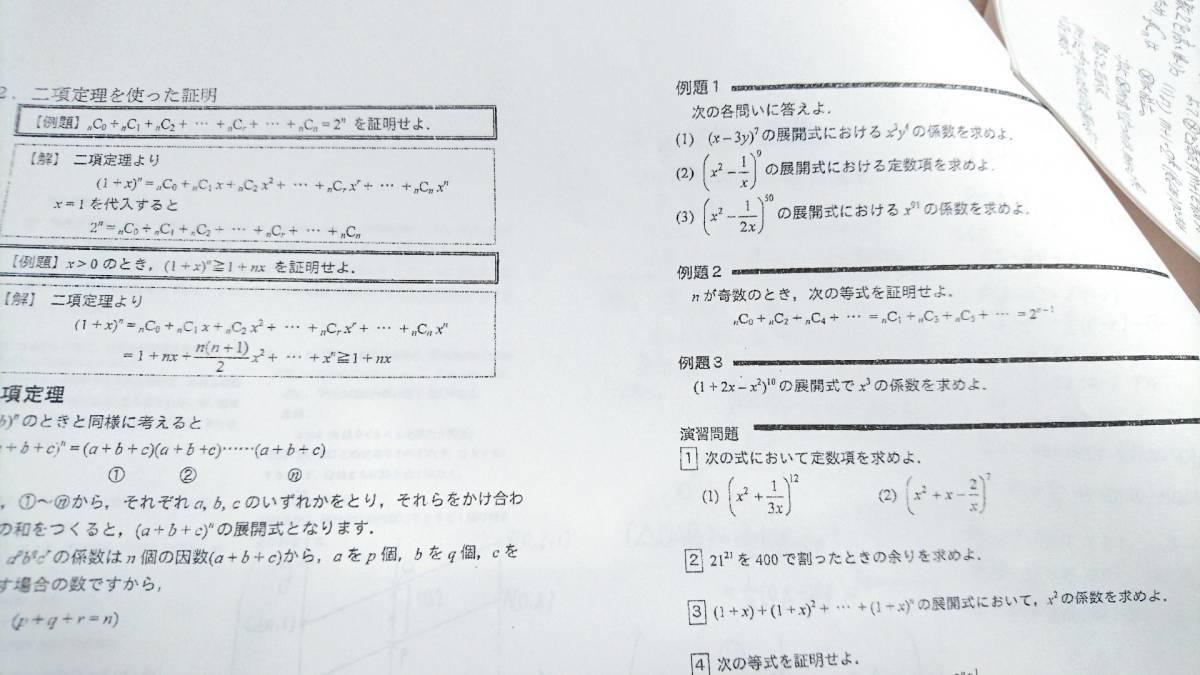 2. 二項定理を使った証明
【例題】 nC0+nC1+nC2+ … +nCr+ … +nCn=2^n を証明せよ.
【解】 二項定理より
(1+x)^n=nC0+nC1 x+nC2 x^2+ … +nCr x^r+ … +nCn x^n
x=1を代入すると
2^n=nC0+nC1+nC2+ … +nCr+ … +nCn
【例題】 x>0 のとき, (1+x)^n≧1+nx を証明せよ.
【解】 二項定理より
(1+x)^n=nC0+nC1 x+nC2 x^2+ … +nCr x^r+ … +nCn x^n
=1+nx+n(n+1)/2 x^2+ … +x^n≧1+nx
項定理
b)^nのときと同様に考えると
+b+c)^n=(a+b+c)(a+b+c)……(a+b+c)
① ② ⓝ
, ①～ⓝから, それぞれ a, b, c のいずれかをとり, それらをかけ合わ
の和をつくると, (a+b+c)^nの展開式となります.
a^pb^qc^rの係数は n 個の因数(a+b+c)から, aをp個, bをq個, cを
す場合の数ですから,
(p+q+r=n)
例題1
次の各問いに答えよ.
(1) (x-3y)^7の展開式におけるx^3y^4の係数を求めよ.
(2) (x^2-1/x)^9の展開式における定数項を求めよ.
(3) (x^2-1/2x)^50の展開式におけるx^91の係数を求めよ.
例題2
nが奇数のとき, 次の等式を証明せよ.
nC0+nC2+nC4+ … =nC1+nC3+nC5+ … =2^n-1
例題3
(1+2x-x^2)^10の展開式でx^3の係数を求めよ.
演習問題
1 次の式において定数項を求めよ.
(1) (x^2+1/3x)^12 (2) (x^2+x-2/x)^7
2 21^21を400で割ったときの余りを求めよ.
3 (1+x)+(1+x)^2+ … +(1+x)^nの展開式において, x^2の係数を求めよ.
4 次の等式を証明せよ.